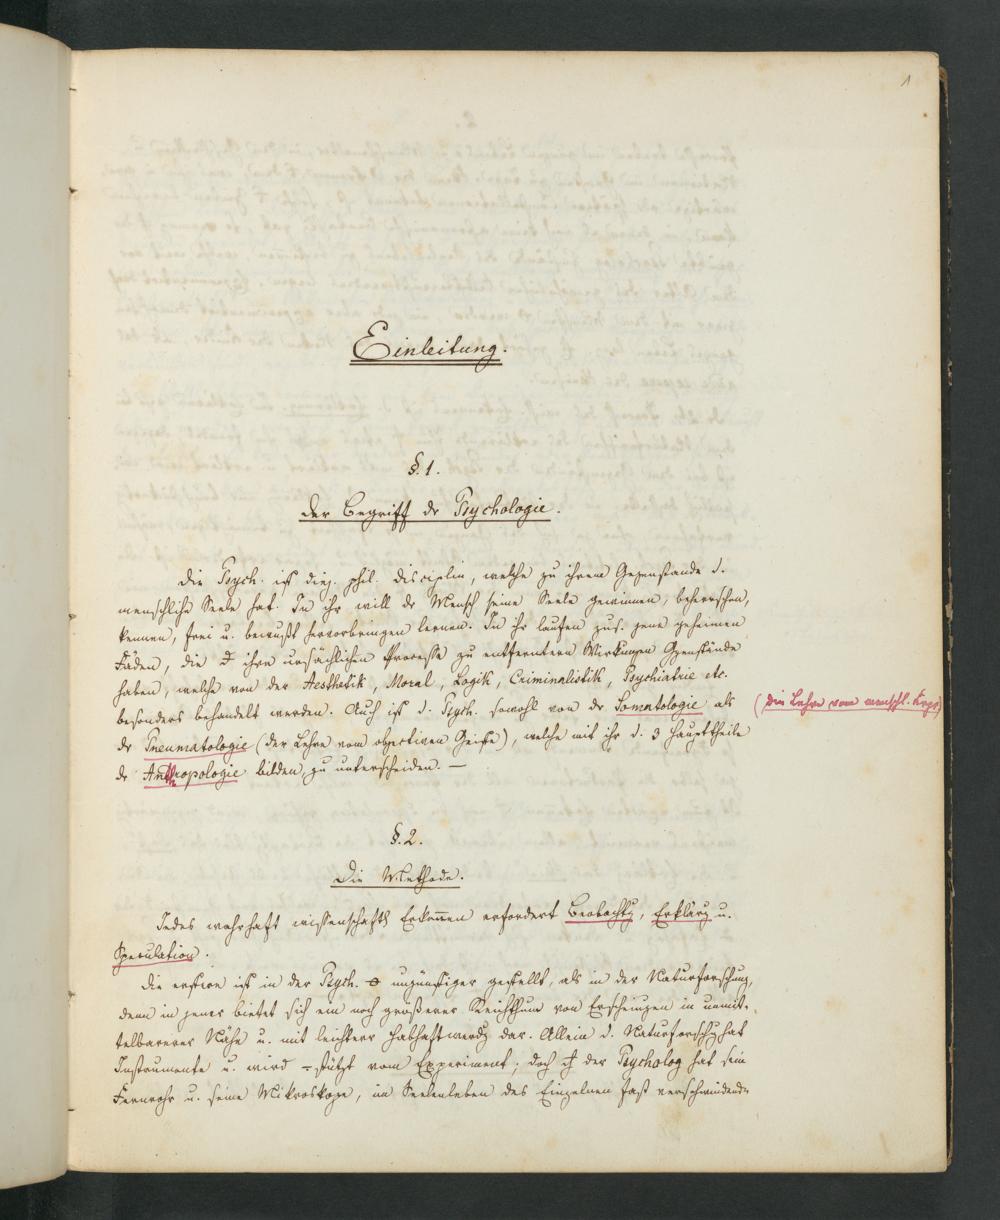 1
Einleitung.
§. 1.
Der Begriff dr Psychologie.
Die Psych. ist diej. phil. Disciplin, welche zu ihrem Gegenstande d.
menschliche Seele hat. In ihr will dr Mensch seine Seele gewinnen, beherrschen,
kennen, frei u. bewußt hervorbringen lernen. In ihr laufen zus. jene geheimen
Fäden, die ihre ursächlichen Processe zu entfernteren Wirkungen Ggenstände
haben, welche von der Aesthetik, Moral, Logik, Criminalistik, Psychiatrie etc.
besonders behandelt werden. Auch ist d. Psych. sowohl von dr Somatologie als
(die Lehre vom menschl. Körpr)
dr Pneumatologie (der Lehre vom objectiven Geiste), welche mit ihr d. 3 Haupttheile
dr Anthropologie bilden, zu unterscheiden. —
§. 2.
Die Methode.
Jedes wahrhaft wissenschaftl. Erkennen erfordert Beobachtg, Erklärg u.
Speculation.
Die erstere ist in der Psych. ungünstiger gestellt, als in der Naturforschung,
denn in jener bietet sich ein noch größerer Reichthum von Erscheinungen in unmit-
telbarerer Nähe u. mit leichterer Habhaftwerdg dar. Allein d. Naturforschg hat
Instrumente u. wird stützt vom Experiment; doch der Psycholog hat sein
Fernrohr u. seine Mikroskope, im Seelenleben des Einzelnen fast verschwindende